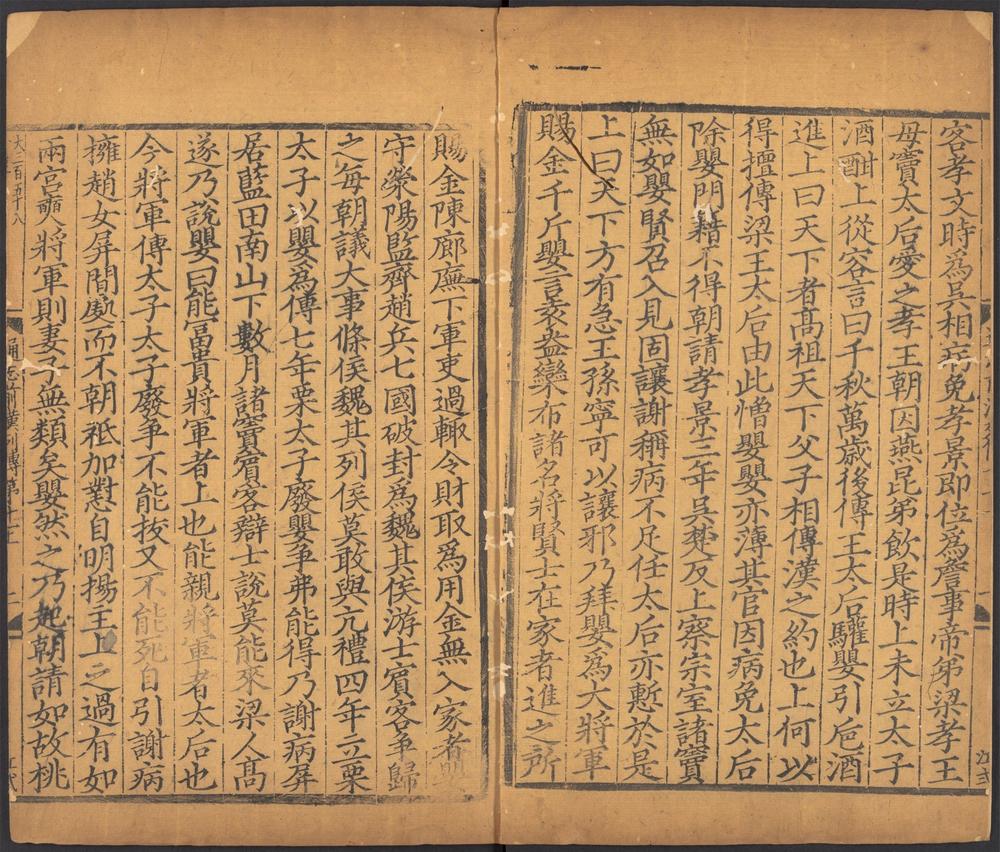 客孝文時爲吳相病免孝景即位爲詹事帝弟梁孝王
母竇太后愛之孝王朝因燕昆弟飲是時上未立太子
酒酣上從容言曰千秋萬歲後傳王太后驩嬰引巵酒
進上曰天下者髙祖天下父子相傳漢之約也上何以
得擅傳梁王太后由此憎嬰嬰亦薄其官因病免太后
除嬰門籍不得朝請孝景三年吳楚反上察宗室諸竇
無如嬰賢召入見固讓謝稱病不足任太后亦慙於是
上曰天下方有急王孫寧可以讓邪乃拜嬰爲大將軍
賜金千斤嬰言爰盎欒布諸名將賢士在家者進之所
賜金陳廊廡下軍吏過輒令財取爲用金無入家者嬰
守滎陽監齊趙兵七國破封爲魏其侯游士賓客争歸
之每朝議大事條侯魏其列侯莫敢與亢禮四年立栗
太子以嬰爲傅七年栗太子廢嬰争弗能得乃謝病屏
居藍田南山下數月諸竇賓客辯士說莫能來梁人髙
遂乃說嬰曰能冨貴將軍者上也能親將軍者太后也
今將軍傅太子太子廢争不能拔又不能死自引謝病
擁趙女屏間處而不朝祗加懟自明揚主上之過有如
兩宮奭將軍則妻子無類矣嬰然之乃起朝請如故桃
大三百五十八
列傳第